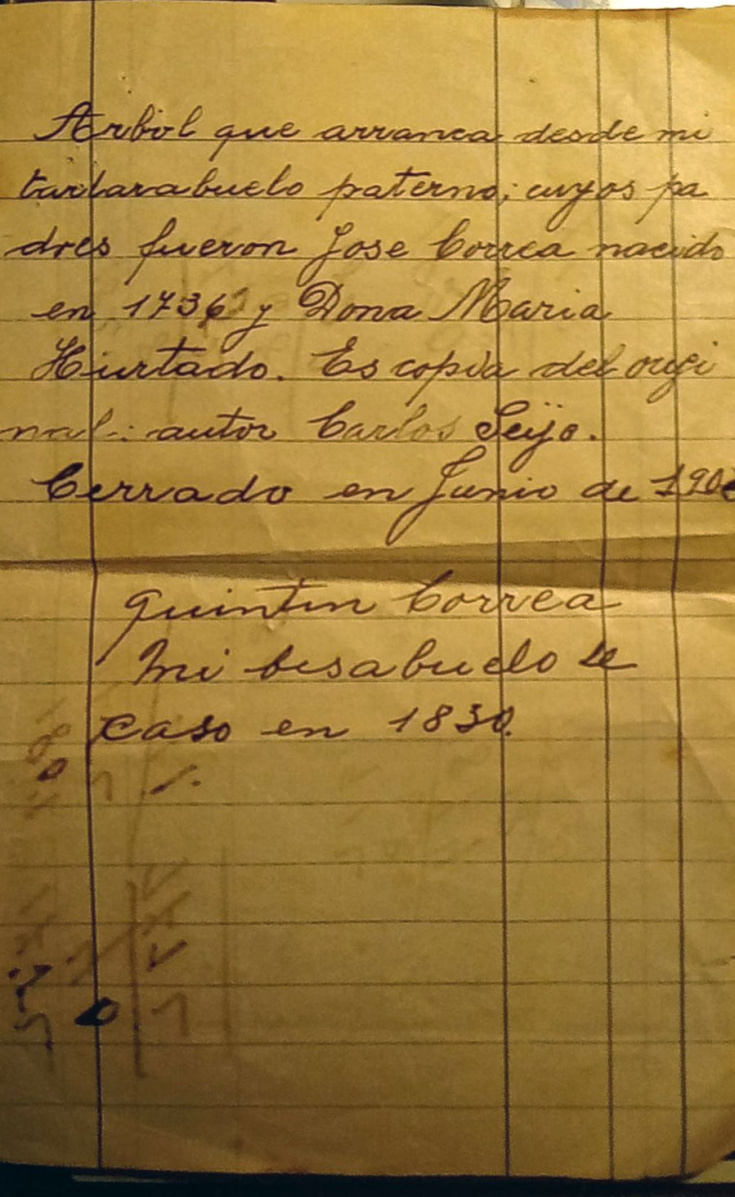 Arbol que arranca desde mi
tartarabuelo paterno; cuyos pa
dres fueron Jose Correa nacido
en 1736 y Dona Maria
Hurtado. Es copia del origi
nal: autor Carlos Seijo.
Cerrado en Junio de
Quintin Correa
mi bisabuelo se
caso en 1830.